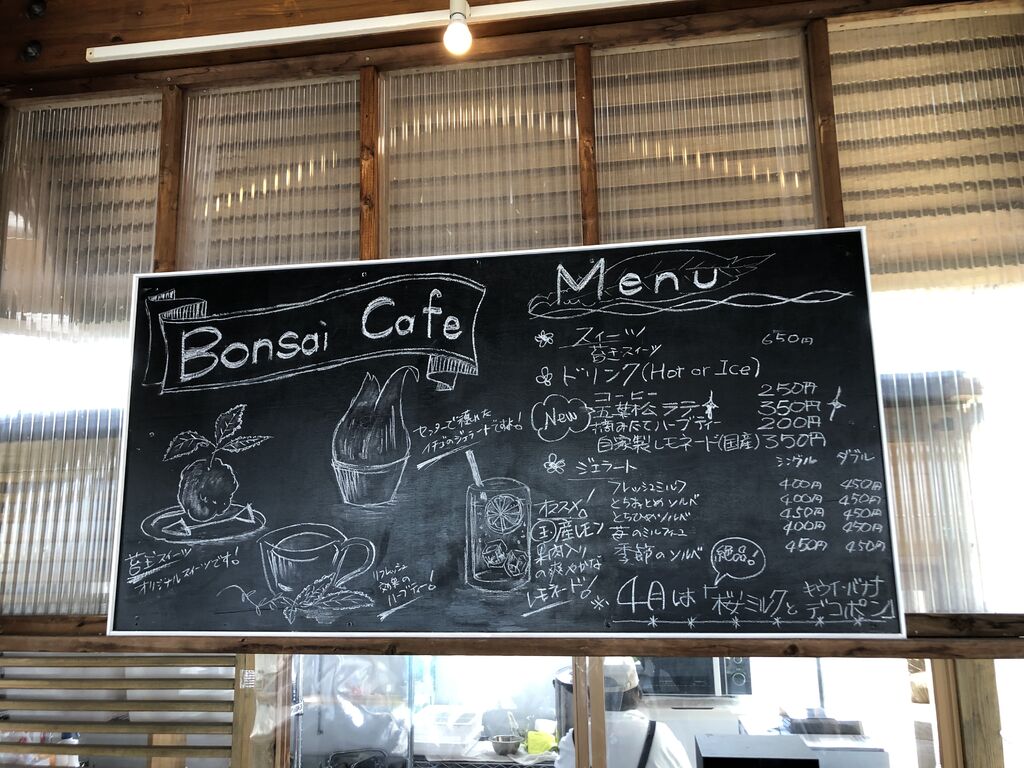 Bonsai Cafe
Menu
スイーツ
苔玉スイーツ 650円
ドリンク(Hot or Ice)
コーヒー 250円
New
五葉松ラテ 350円
摘みたてハーブティー 200円
自家製レモネード(国産) 350円
ジェラート シングル ダブル
フレッシュミルク 400円 450円
とちおとめソルベ 400円 450円
とちひめソルベ 450円 450円
苺のミルフィーユ 400円 450円
季節のソルベ 450円 450円
絶品!
※4月は「桜ミルクと キウイ・バナナ
デコポン」
イチゴのジェラートですよ!
苔玉スイーツ
オリジナルスイーツです!
リフレッシュ
効果の
ハーブティー!
オススメ!
国産レモン
果肉入り
の爽やかな
レモネード!